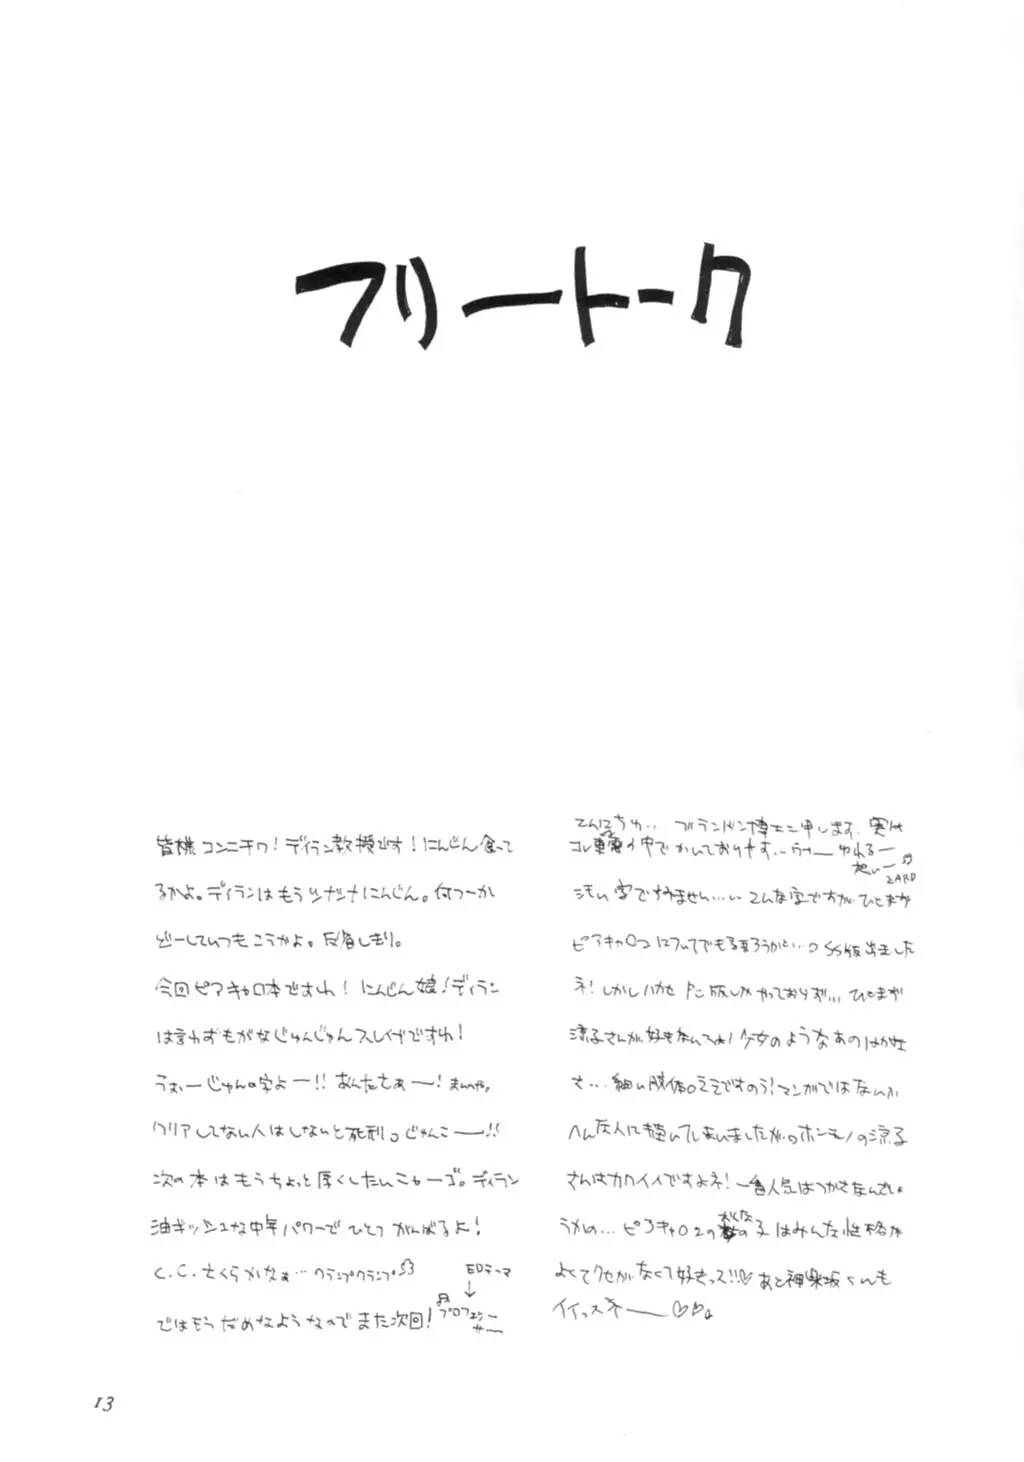 フリートーク
皆様コンニチワ!ディラン教授です!にんじん食って
るかよ。ディランはもう にんじん。何つーか
どーしていつもこうかよ。反省しきり。
今回ピアキャロ本ですわ!にんじん娘!ディラン
は言わずもがなじゅんじゅんスレイブですわ!
うぉーじゅんの字よー!!あんたさぁー!まいいや。
クリアしてない人はしないと死刑。じゃんこー!!
次の本はもうちょっと厚くしたいニャーゴ。ディラン
油ギッシュな中年パワーでひとつがんばるよ!
C.C.さくらかなぁ…クランプクランプ
ではもうだめなようなのでまた次回!
EDテーマ
↓
♫プロフェッサー
こんにちわ… ブランドン博士と申します。実は
コレ電車の中でかいております… ゆれるー
想いー♫
ZARD
汚い字ですみません…こんな字ですがひとまず
ピアキャロ2についてでも語ろうかと…。SS版出ました
ネ!しかしハカセ 版しかやっておりず…ひとまず
涼子さんが好きなんでね!少女のようなあの
さ…細い肢体。ええですのう!マンガではないか
へんな人に描いてしまいましたが。ホンモノの涼子
さんはカワイイですよネ!一番人気はつかさなんでしょ
うかの…ピアキャロ2の女の子はみんな性格が
よくてクセがなくて好きっス!!♡あと神楽坂くんも
イイっスネー♡♡。
13